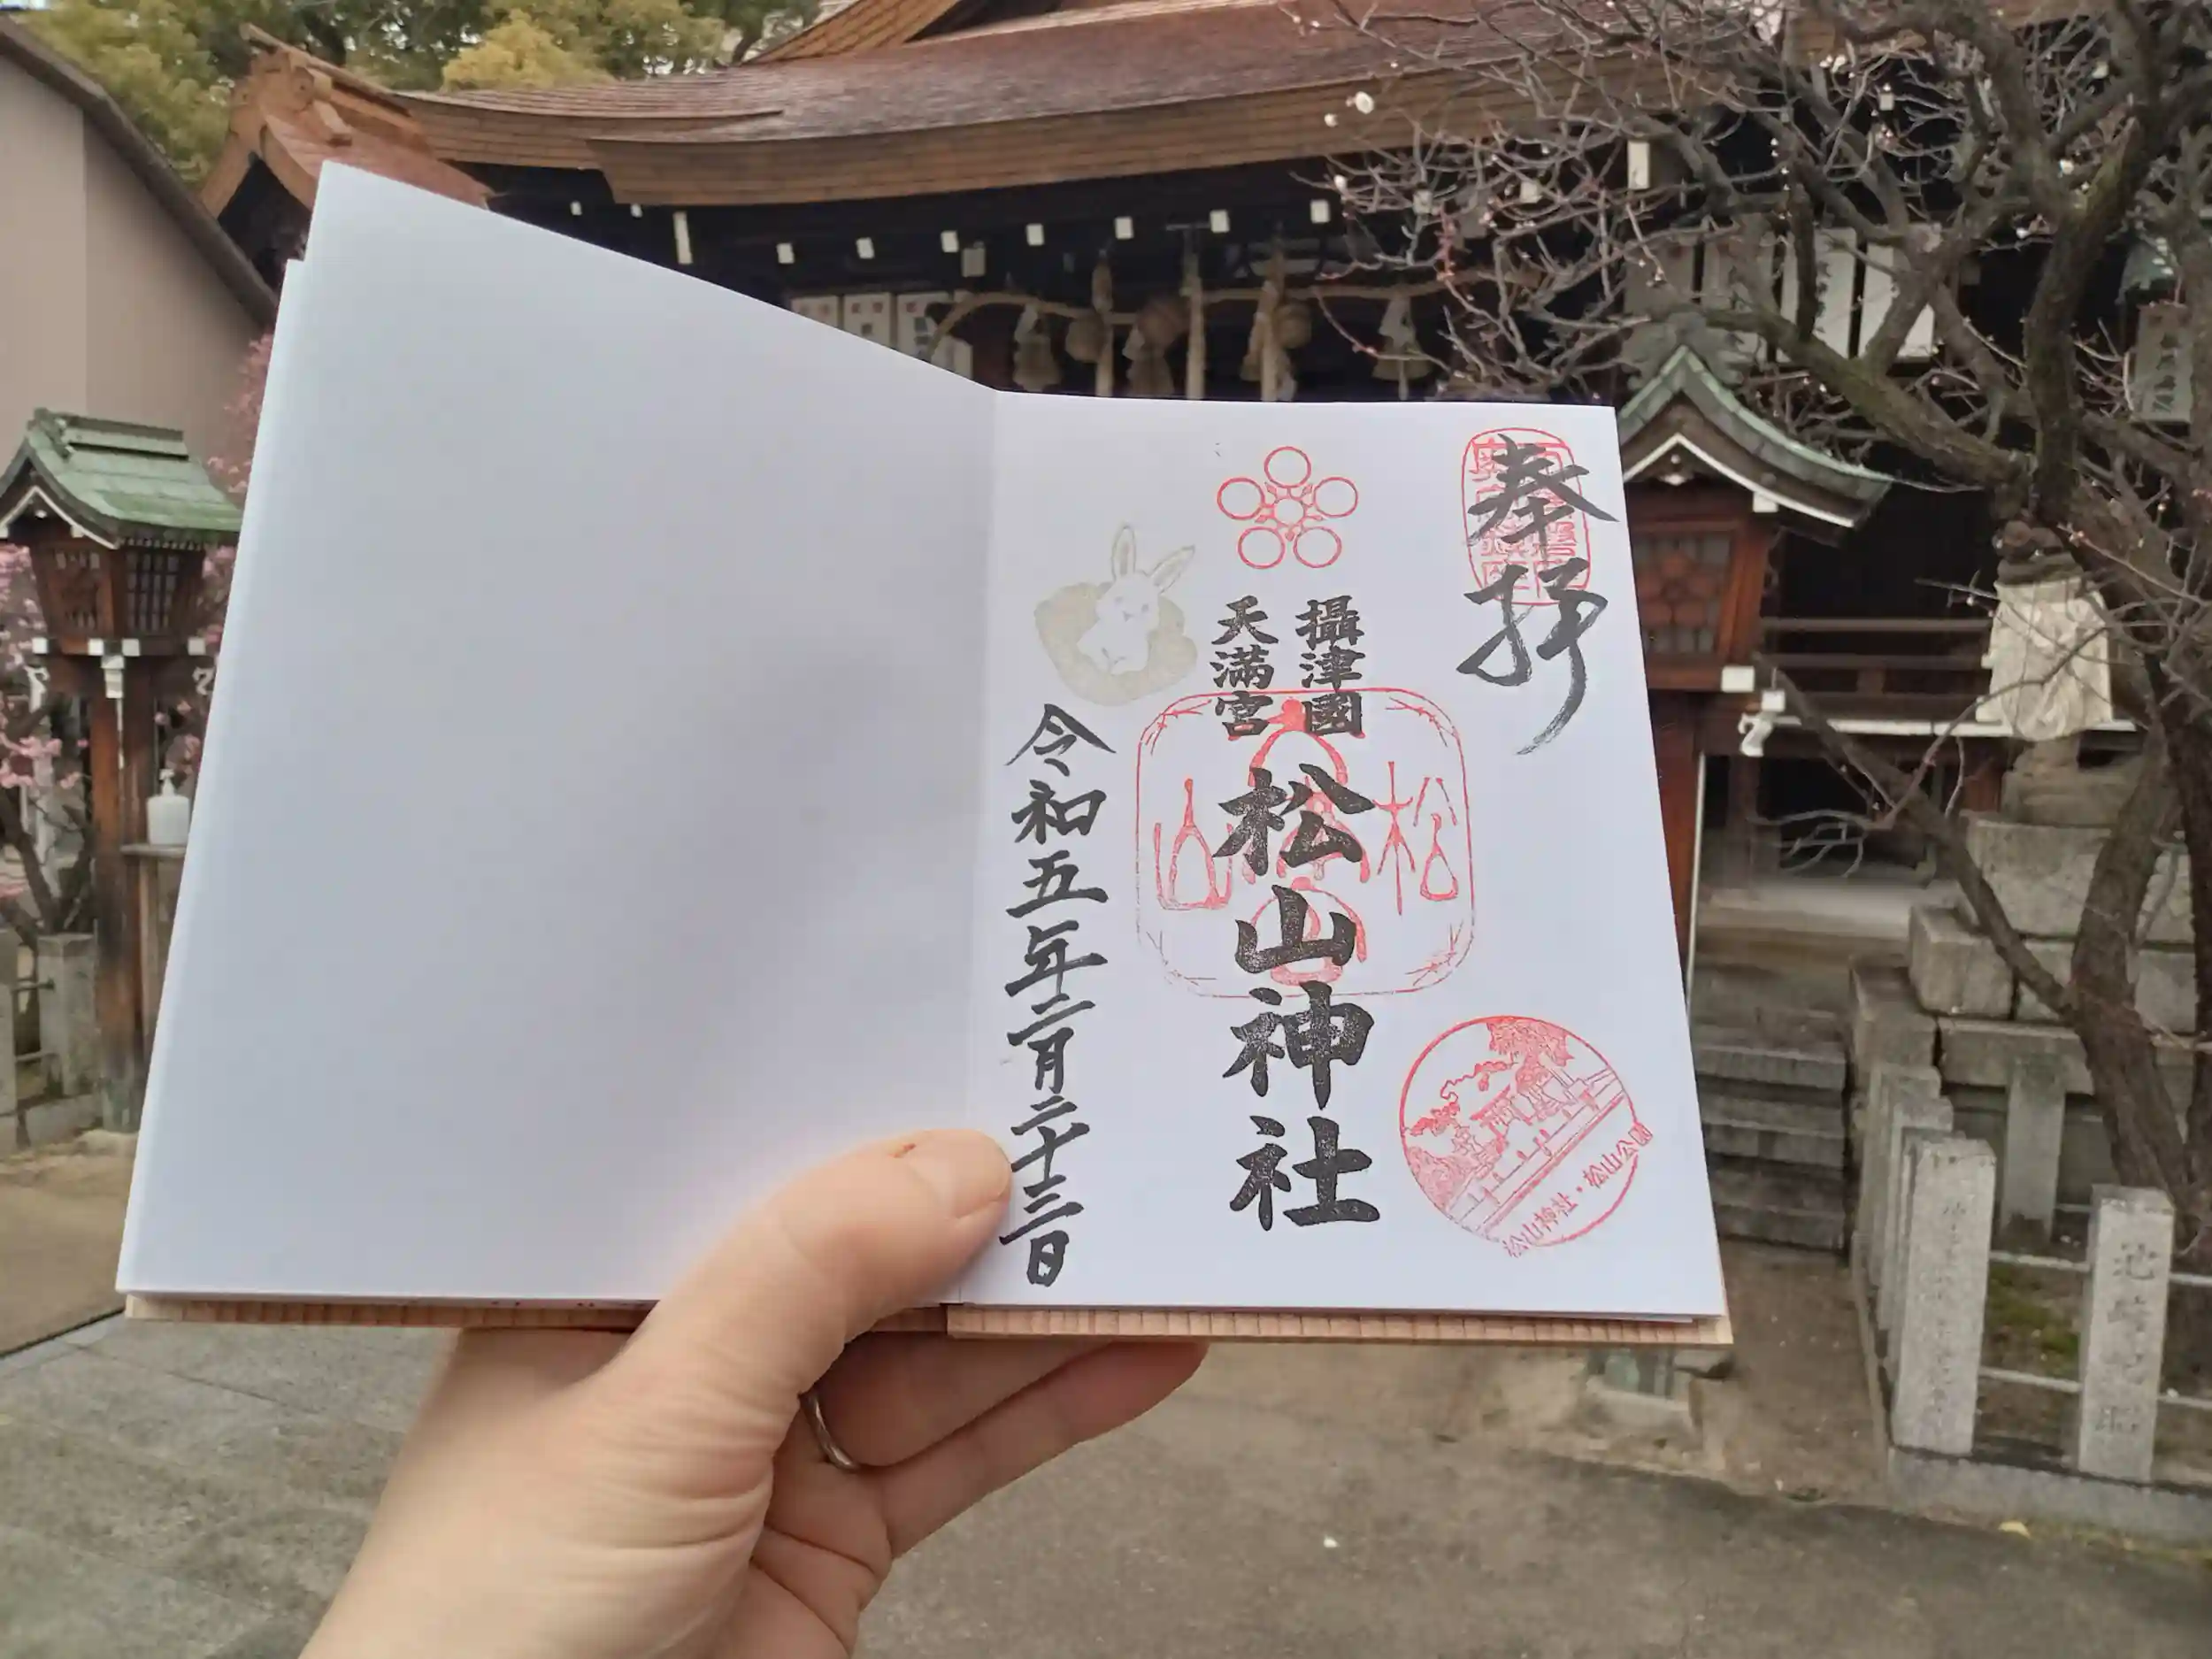 奉拝
攝津國
天満宮
松山神社
松山
松山神社・松山公園
令和五年二月二十三日